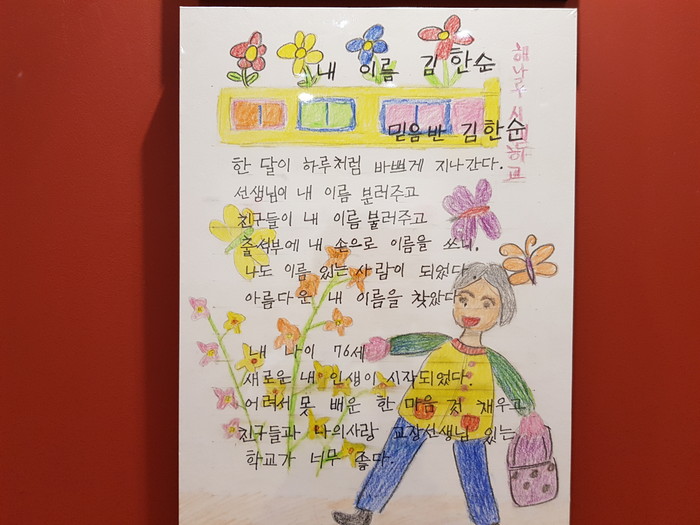 내 이름 김한순
믿음반 김한순
한 달이 하루처럼 바쁘게 지나간다.
선생님이 내 이름 불러주고
친구들이 내 이름 불러주고
출석부에 내 손으로 이름을 쓰니.
나도 이름 있는 사람이 되었다.
아름다운 내 이름을 찾았다
내 나이 76세
새로운 내 인생이 시작되었다.
어려서 못 배운 한 마음 것 채우고
친구들과 나의사랑 교장선생님 있는
학교가 너무 좋다.
해나루 시민학교